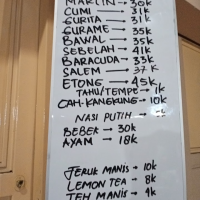 MARLIN → 30K
CUMI → 31K
GURITA → 31K
GURAME → 35K
BAWAL → 35K
SEBELAH → 41K
BARACUDA → 33K
SALEM → 37K
ETONG → 45K
TAHU/TEMPE → 1K
CAH-KANGKUNG → 10K
NASI PUTIH →
BEBEK → 30K
AYAM → 18K
JERUK MANIS → 10K
LEMON TEA → 8K
TEH MANIS → 4K